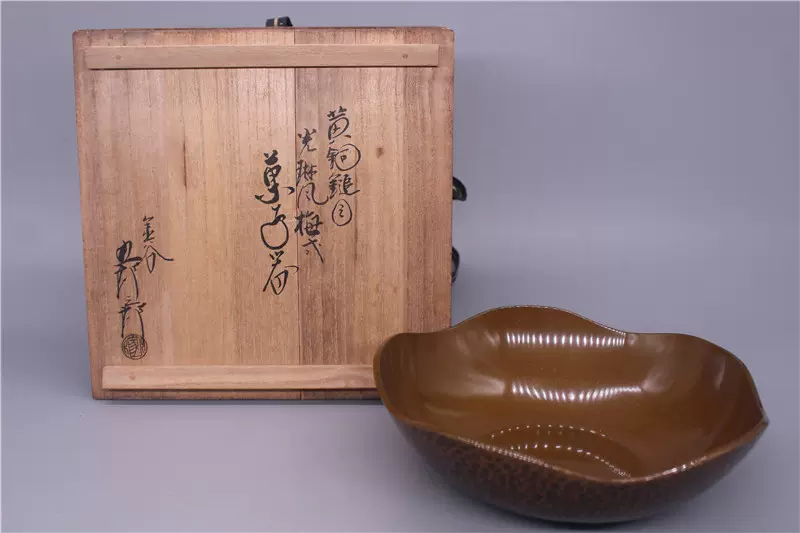 黄銅鎚目
光琳風梅式
菓子器
金谷
五郎三郎